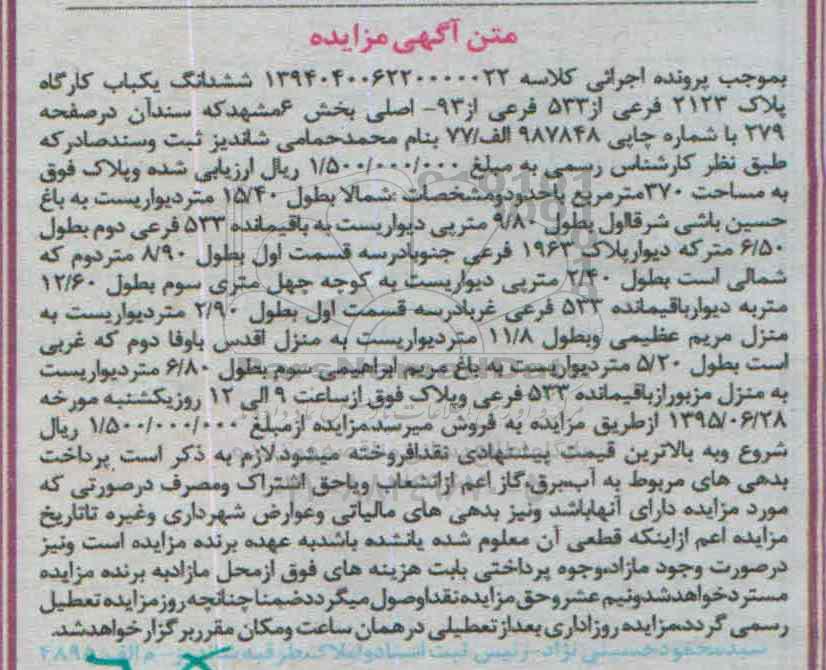 متن آگهی مزایده
بموجب پرونده اجرائی کلاسه ۱۳۹۴۰۴۰۰۶۲۲۰۰۰۰۰۲۲ ششدانگ یکباب کارگاه
پلاک ۲۱۲۳ فرعی از۵۳۳ فرعی از۹۳- اصلی بخش ۶مشهدکه سندآن درصفحه
۲۷۹ با شماره چاپی ۹۸۷۸۴۸ الف/۷۷ بنام محمدحمامی شاندیز ثبت وسندصادرکه
طبق نظر کارشناس رسمی به مبلغ ۱/۵۰۰/۰۰۰/۰۰۰ ریال ارزیابی شده وپلاک فوق
به مساحت ۳۷۰مترمربع باحدودومشخصات :شمالا بطول ۱۵/۴۰ متردیواریست به باغ
حسین باشی شرقااول بطول ۹/۸۰ مترپی دیواریست به باقیمانده ۵۳۳ فرعی دوم بطول
۶/۵۰ مترکه دیوارپلاک ۱۹۶۳ فرعی جنوبادرسه قسمت اول بطول ۸/۹۰ متردوم که
شمالی است بطول ۲/۴۰ مترپی دیواریست به کوچه چهل متری سوم بطول ۱۲/۶۰
متربه دیوارباقیمانده ۵۳۳ فرعی غربادرسه قسمت اول بطول ۲/۹۰ متردیواریست به
منزل مریم عظیمی وبطول ۱۱/۸ متردیواریست به منزل اقدس باوفا دوم که غربی
است بطول ۵/۲۰ متردیواریست به باغ مریم ابراهیمی سوم بطول ۶/۸۰ متردیواریست
به منزل مزبورازباقیمانده ۵۳۳ فرعی وپلاک فوق ازساعت ۹ الی ۱۲ روزیکشنبه مورخه
۱۳۹۵/۰۶/۲۸ ازطریق مزایده به فروش میرسد.مزایده ازمبلغ ۱/۵۰۰/۰۰۰/۰۰۰ ریال
شروع وبه بالاترین قیمت پیشنهادی نقدافروخته میشود.لازم به ذکر است پرداخت
بدهی های مربوط به آب،برق،گاز اعم ازانشعاب ویاحق اشتراک ومصرف درصورتی که
مورد مزایده دارای آنهاباشد ونیز بدهی های مالیاتی وعوارض شهرداری وغیره تاتاریخ
مزایده اعم ازاینکه قطعی آن معلوم شده یانشده باشدبه عهده برنده مزایده است ونیز
درصورت وجود مازاد،وجوه پرداختی بابت هزینه های فوق ازمحل مازادبه برنده مزایده
مستردخواهدشدونیم عشروحق مزایده نقداوصول میگردد.ضمناچنانچه روزمزایده تعطیل
رسمی گردد،مزایده روزاداری بعدازتعطیلی درهمان ساعت ومکان مقرربرگزارخواهدشد.
سیدمحمودحسینی نژاد- رئیس ثبت اسنادواملاک طرقبه شاندیز- م الف